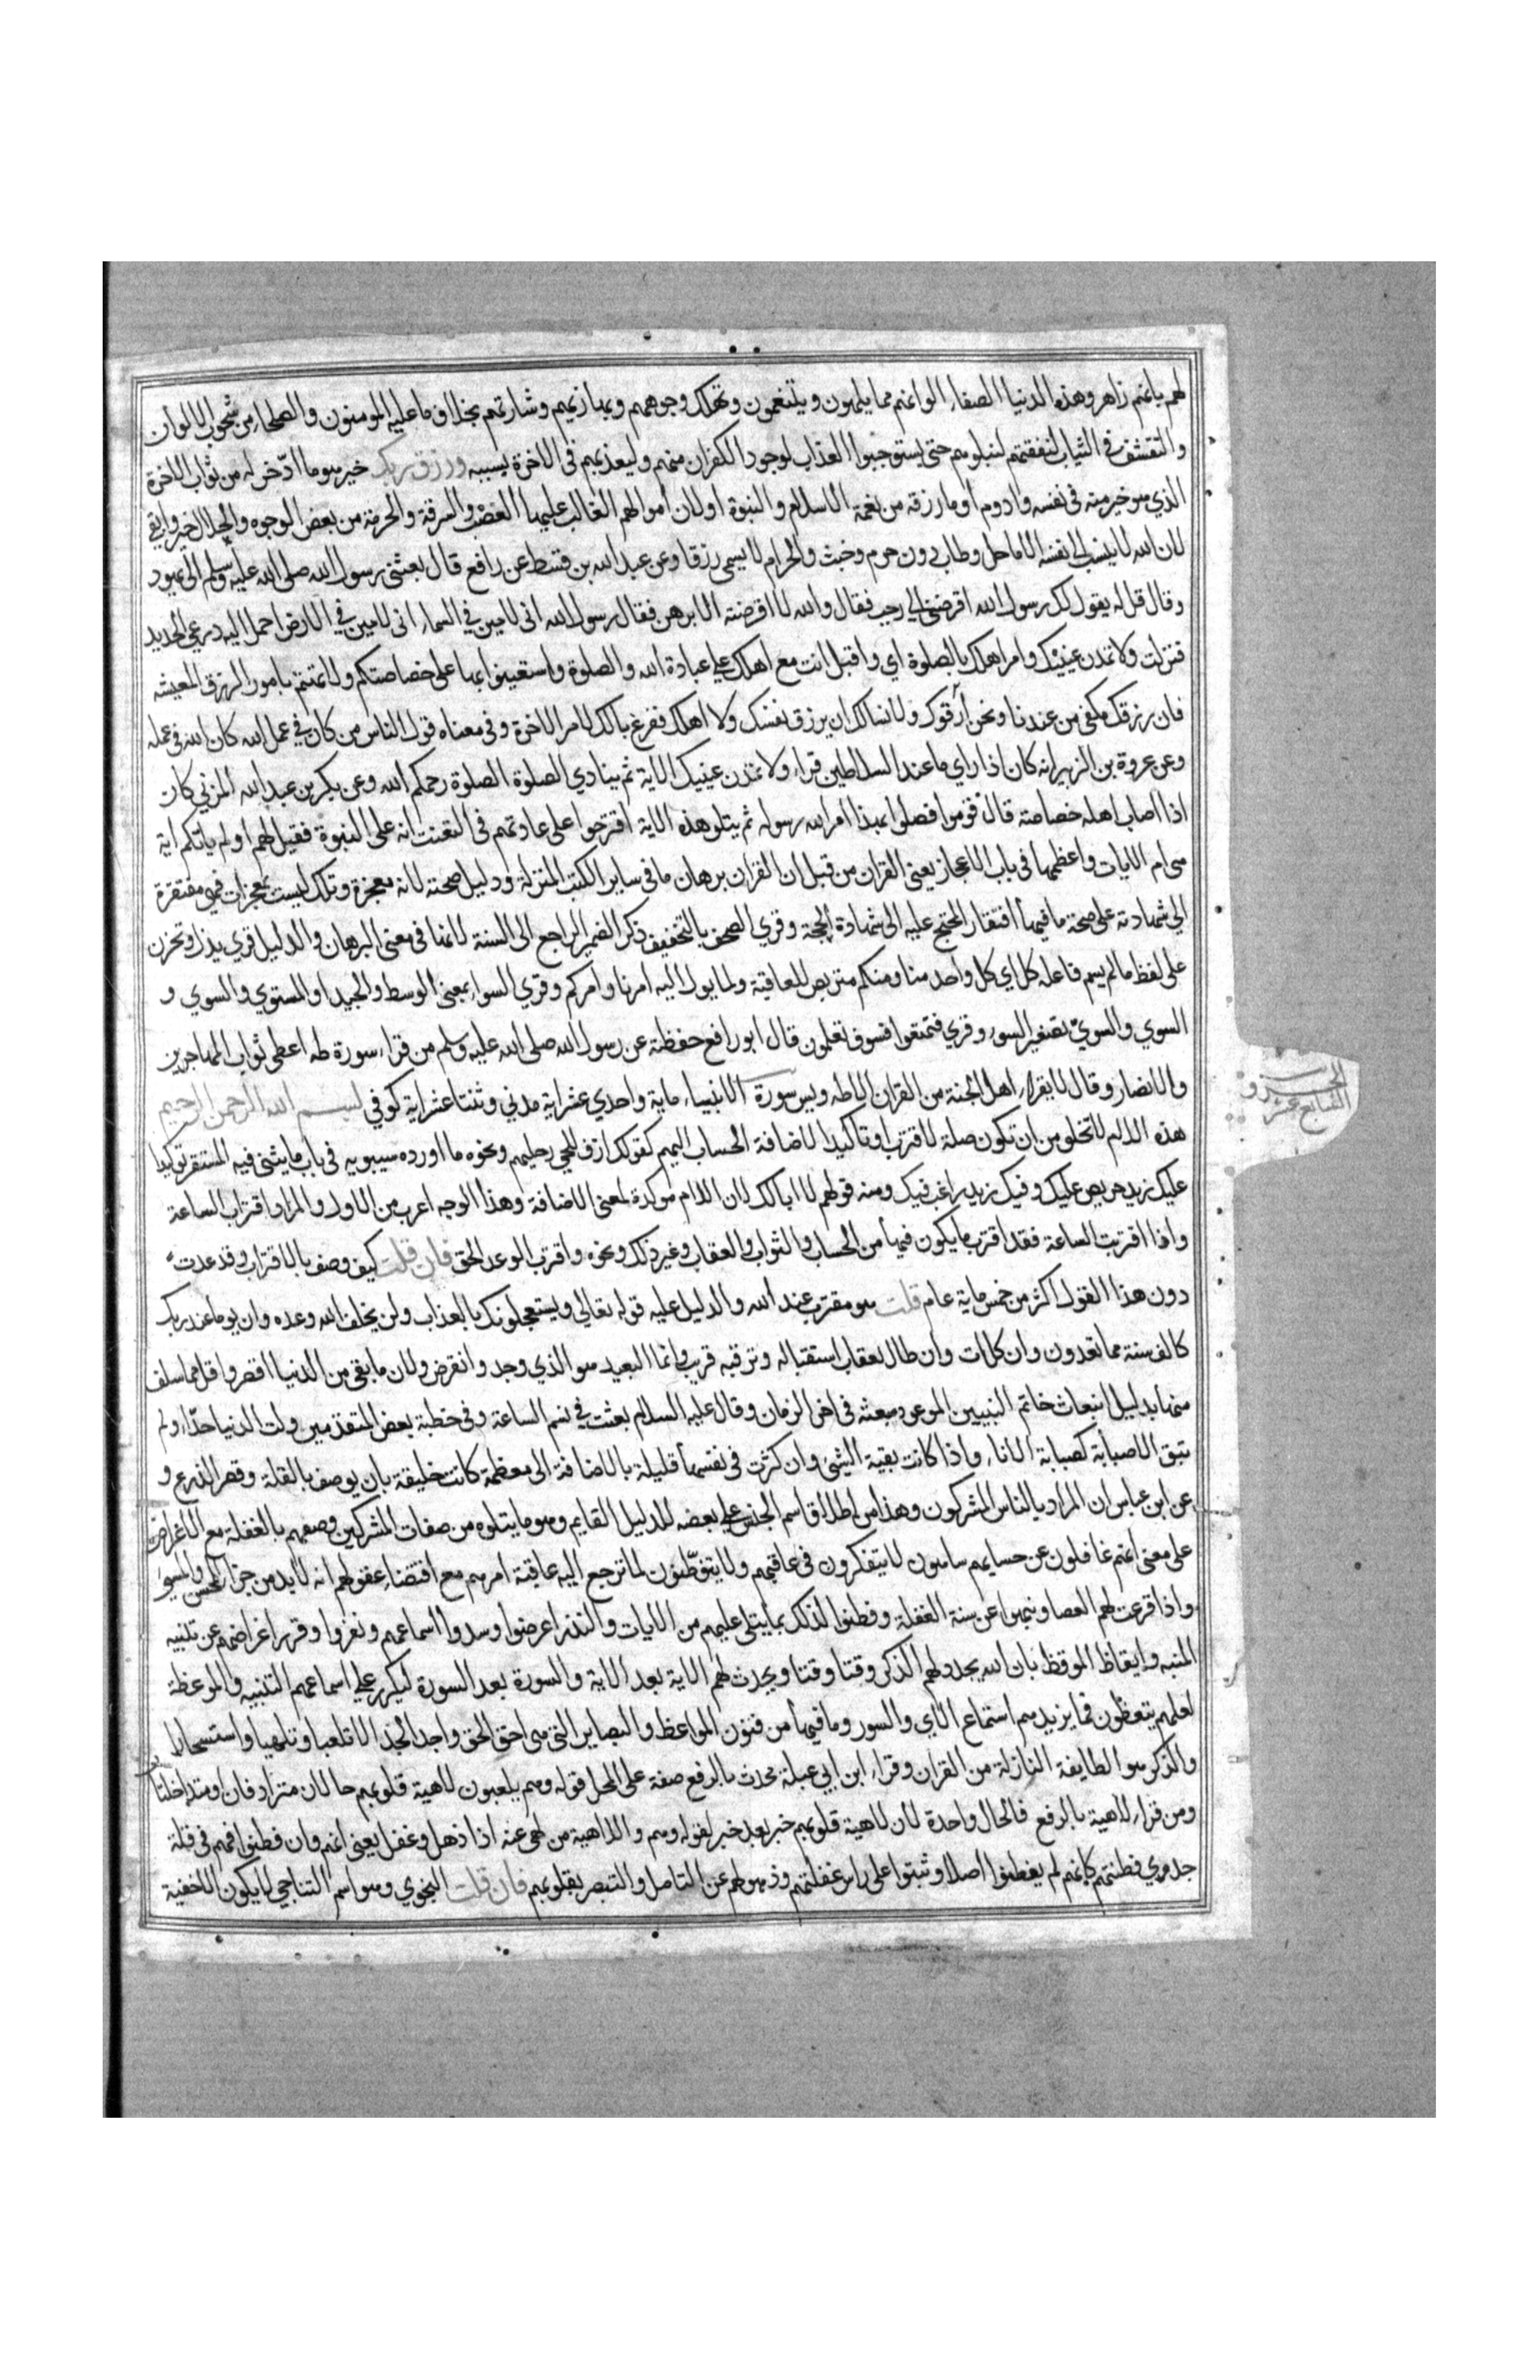 لهم بانهم زاهروهذه الدنيا الصفاء الوانهم مما يلهون ويتنعمون وتهلل وجوههم وبهاء زيهم وشارتهم بخلاف ما عليه المومنون والصلحاء من شحوب الالوان
والتقشف في الثياب لنفتنهم لنبلوهم حتى يستوجبوا العذاب لوجود الكفران منهم وليعذبهم في الاخرة بسببه ورزق ربك خير هو ما ادّخر له من ثواب الاخرة
الذي هو خير منه في نفسه وادوم او ما رزقه من نعمة الاسلام والنبوة او لان اموالهم الغالب عليها الغصب والسرقة والحرمة من بعض الوجوه والحلال خير وابقى
لان الله لا ينسب الى نفسه الا ما حل وطاب دون حرم وخبث والحرام لا يسمى رزقا وعن عبد الله بن قسط عن رافع قال بعثني رسول الله صلى الله عليه وسلم الى يهود
وقال قل له يقول لك رسول الله اقرضني الى رجب فقال والله لا اقرضته الا برهن فقال رسول الله اني لامين في السماء اني لامين في الارض احمل اليه درعي الحديد
فنزلت ولا تمدن عينيك وامر اهلك بالصلوة اي واقبل انت مع اهلك على عبادة الله والصلوة واستعينوا بها على خصاصتكم ولا تهتم بامور الرزق المعيشه
فان رزقك مكفي من عندنا ونحن ارزقوك ولا نسالك ان يرزق نفسك ولا اهلك ففرغ بالك لامر الاخرة وفي معناه قول الناس من كان في عمل الله كان الله في عمله
وعن عروة بن الزبير انه كان اذا راى ما عند السلاطين قراء ولا تمدن عينيك الاية ثم ينادي الصلوة الصلوة رحمكم الله وعن بكر بن عبد الله المزني كان
اذا اصاب اهله خصاصة قال قوموا فصلوا بهذا امر الله رسوله ثم يتلو هذه الاية اقترحوا على عادتهم في التعنت انه على النبوة فقيل لهم اولم ياتكم اية
هي ام الايات واعظمها في باب الاعجاز يعني القران من قبل ان القران برهان ما في ساير الكتب المنزلة ودليل صحته لانه معجزة وتلك ليست بمعجزات فهي مفتقرة
الى شهادته على صحة ما فيها افتقار المحتج عليه الى شهادة الحجة وقري الصحف بالتخفيف ذكر الضمير الراجع الى السنة لانها في معنى البرهان والدليل قري يذل ويخزى
على لفظ ما لم يسم فاعله كل اي كل واحد منا ومنكم متربص للعاقبة ولما يول اليه امرنا وامركم وقري السواء بمعنى الوسط والجيد او المستوي والسوي و
السوي والسويّ تصغير السوء وقري فتمتعوا فسوف تعلمون قال ابو رافع حفظته عن رسول الله صلى الله عليه وسلم من قراء سورة طه اعطى ثواب المهاجرين
والانصار وقال لا يقراء اهل الجنة من القران الا طه ويس سورة الانبياء ماية واحدي عشراية مدني وثنتا عشراية كوفي بسم الله الرحمن الرحيم
هذه اللام لا تخلو من ان تكون صلة لاقترب او تاكيدا لاضافة الحساب اليهم كقولك ازف للحي رحيلهم ونحوه ما اورده سيبويه في باب ما يثنى فيه المستقر توكيدا
عليك زيد حريص عليك وفيك زيد راغب فيك ومنه قولهم لا ابا لك لان اللام موكدة لمعنى الاضافة وهذا الوجه اغرب من الاول والمراد اقتراب الساعة
واذا اقتربت الساعة فقد اقترب ما يكون فيها من الحساب والثواب والعقاب وغير ذلك ونحوه واقترب الوعد الحق فان قلت كيف وصف بالاقتراب وقد عدت
دون هذا القول اكثر من خمس ماية عام قلت هو مقترب عند الله والدليل عليه قوله تعالى ويستعجلونك بالعذاب ولن يخلف الله وعده وان يوما عند ربك
كالف سنة مما تعدون وان كل ات وان طال بعقاب استقباله وترقبه قريب وانما البعيد هو الذي وجد وانقرض ولان ما بقي من الدنيا اقصر واقل مما سلف
منها بدليل انبعاث خاتم النبيين الموعود مبعثه في اخر الزمان وقال عليه السلام بعثت في نسم الساعة وفي خطبة بعض المتقدمين ولت الدنيا حذّاء ولم
تبق الا صبابة كصبابة الاناء واذا كانت بقية الشيئ وان كثرت في نفسها قليلة بالاضافة الى معظمه كانت خليقة بان يوصف بالقلة وقصر الذرع و
عن ابن عباس ان المراد بالناس المشركون وهذا من اطلاق اسم الجنس على بعضه للدليل القايم وهو ما يتلوه من صفات المشركين وصفهم بالغفلة مع الاعراض
على معنى انهم غافلون عن حسابهم ساهون لا يتفكرون في عاقبتهم ولا يتفطّنون لما ترجع اليه عاقبة امرهم مع اقتضاء عقولهم انه لابد من جزاء المحسن والمسيء
واذا قرعت لهم العصا ونبهوا عن سنة الغفلة وفطنوا لذلك بما يتلى عليهم من الايات والنذر اعرضوا وسدوا اسماعهم ونفروا وقرر اعراضهم عن تنبيه
المنبه وايقاظ الموقظ بان الله يجدد لهم الذكر وقتا وقتا ويحدث لهم الاية بعد الاية والسورة بعد السورة ليكرر على اسماعهم التنبيه والموعظة
لعلهم يتعظون فما يزيدهم استماع الاي والسور وما فيها من فنون المواعظ والبصاير التي هي احق الحق واجد الجد الا تلعبا وتلهيا واستسخارا
والذكر هو الطايفة النازلة من القران وقراء ابن ابي عبلة محدث بالرفع صفة على المحل قوله وهم يلعبون لاهية قلوبهم حالان مترادفان او متداخلتان
ومن قراء لاهية بالرفع فالحال واحدة لان لاهية قلوبهم خبر بعد خبر لقوله وهم واللاهية من لهى عنه اذا ذهل وغفل يعني انهم وان فطنوا فهم في قلة
جدوي فطنتهم كانهم لم يفطنوا اصلا وثبتوا على راس غفلتهم وذهولهم عن التامل والتبصر بقلوبهم فان قلت النجوي وهو اسم التناجي لا يكون الا خفية
الجزء
السابع عشر